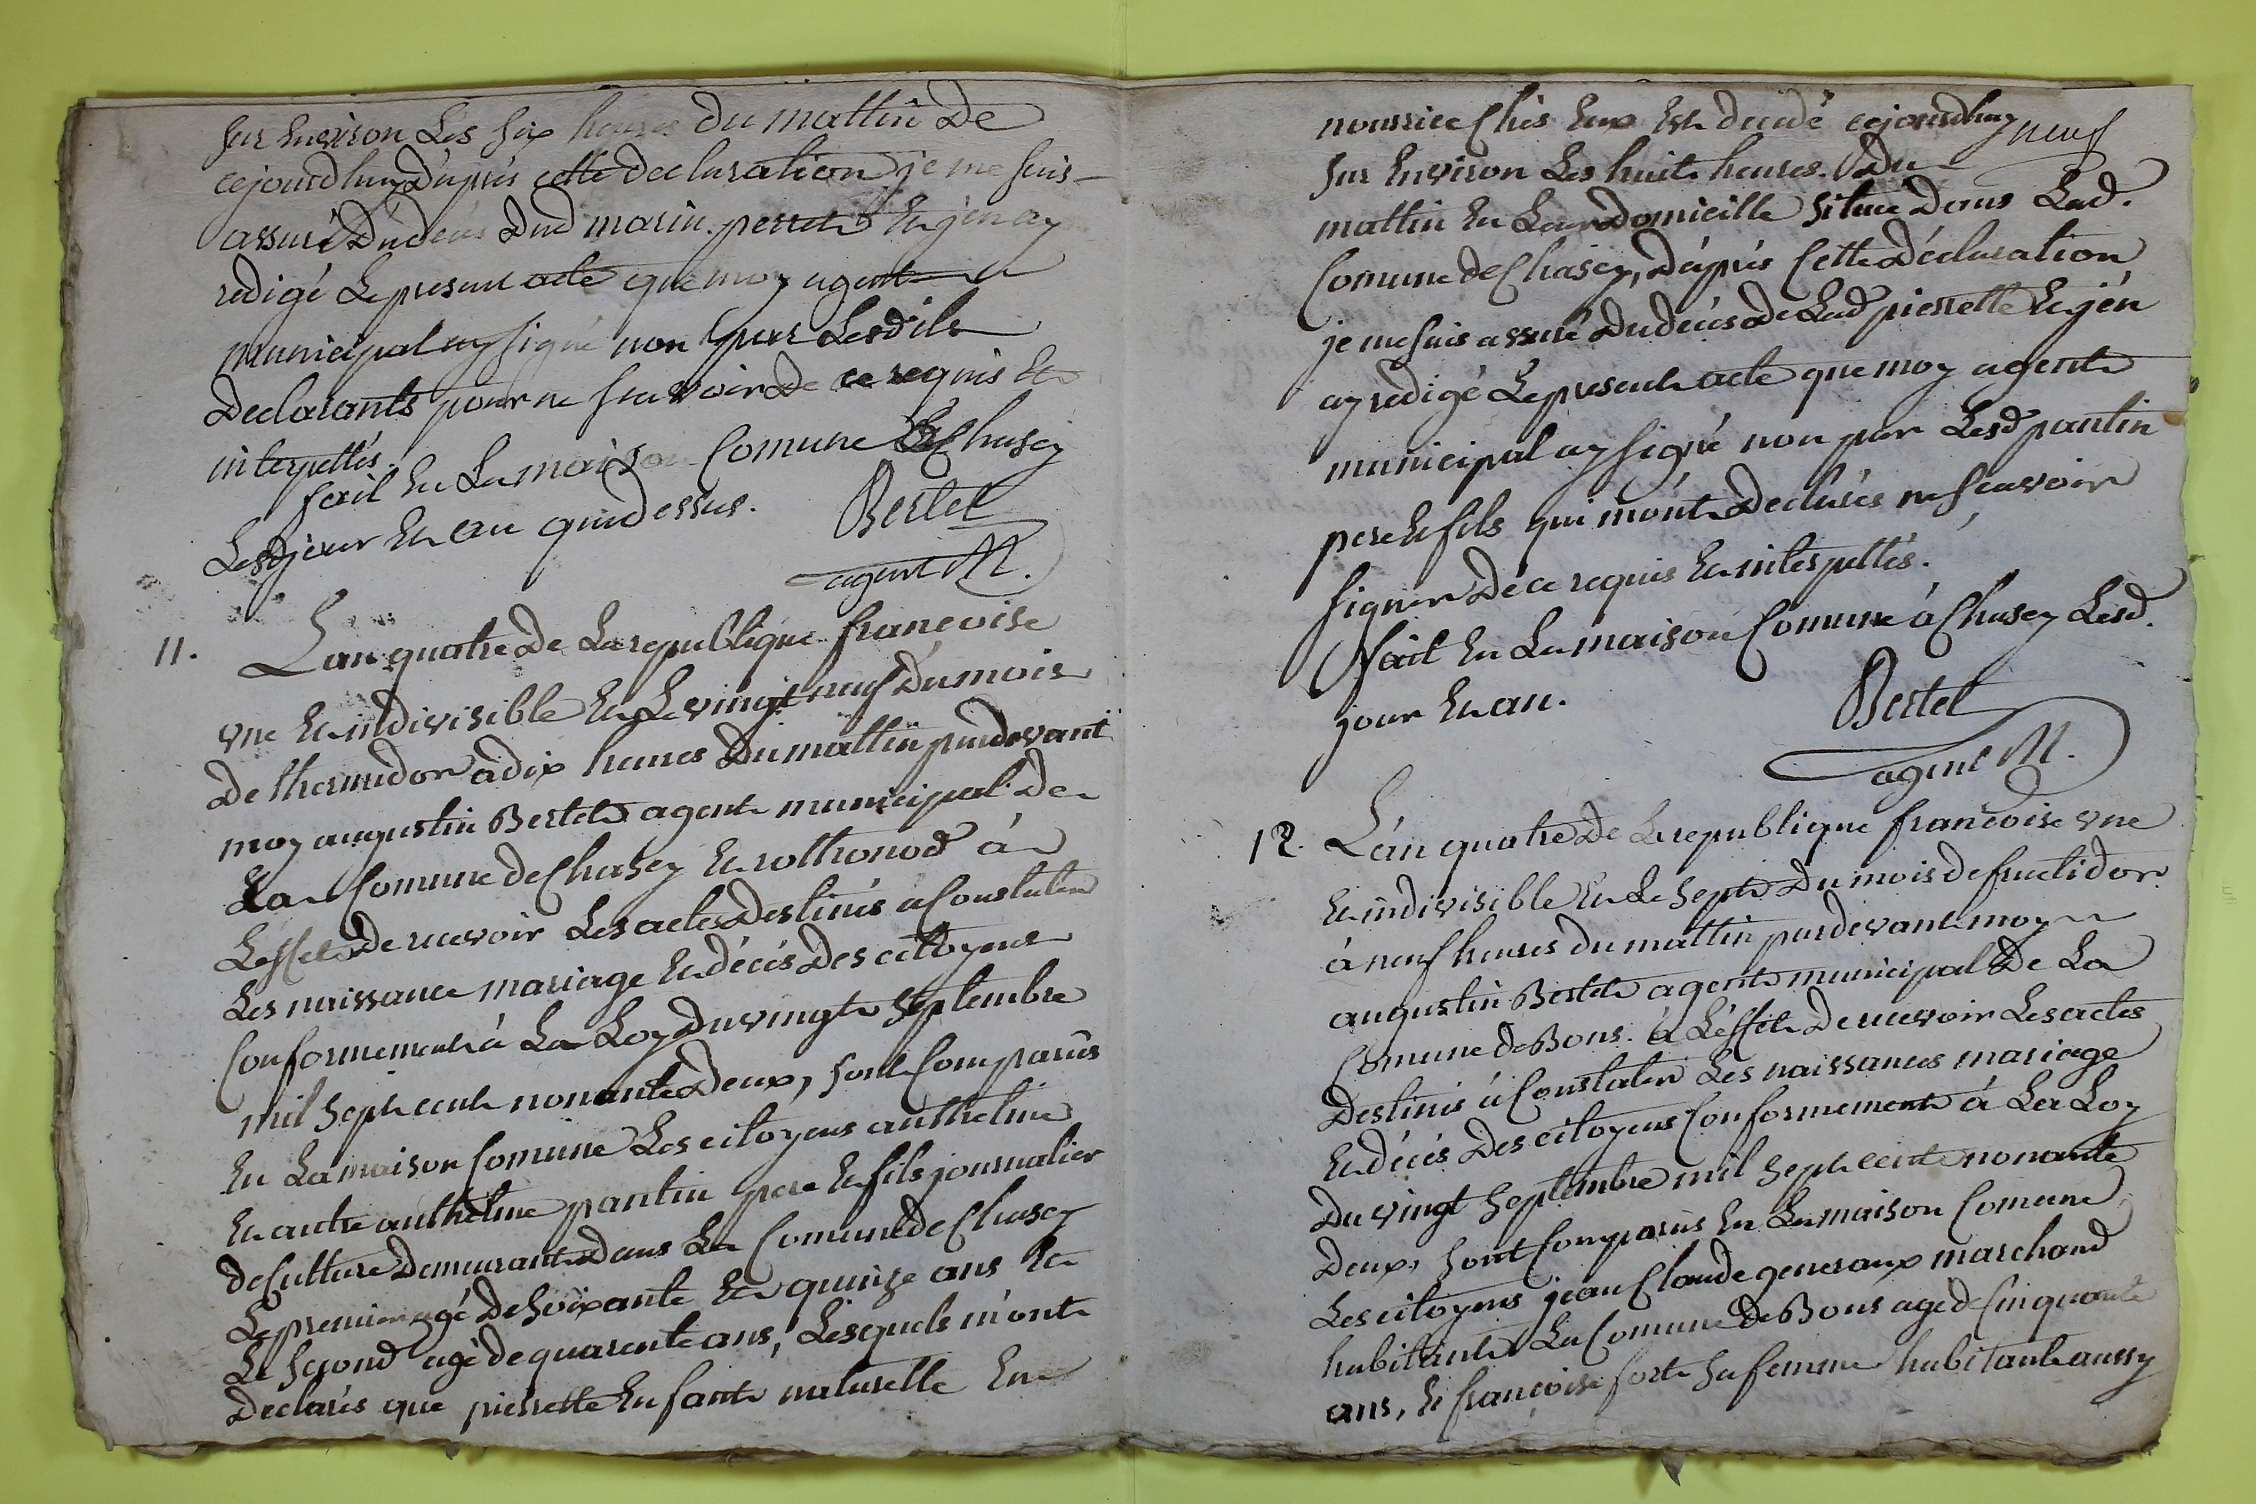 sur Environ Les six heures du mattin de
cejourdhuy d'après cette declaration je me suis
assuré Dudécès Dud marin perret Et j'en ay
redigé Le present acte que moy agent
municipal ay signé non par Lesdits
Declarants pour ne scavoir de ce requis Et
interpellés.
fait En La maison Comune de Chasey
Lesd jour Et an quedessus. Bertet
agent M.
11. L'an quatre de La republique francoise
vne Et indivisible Et Le vingt neuf du mois
de thermidor à dix heures du mattin pardevant
moy augustin Bertet agent municipal de
La Comune de Chasey Et rothonod à
L'effet de recevoir Les actes Destinés à Constater
Les naissance mariage Et décès Des citoyens
Conformement à La Loy du vingt septembre
mil sept cent nonante Deux, sont Comparus
En La maison Comune Les citoyens anthelme
Et autre anthelme pantin pere Et fils journalier
de Culture Demeurant Dans La Comune de Chasey
Le premier agé de soixante Et quinze ans Et
Le second agé de quarente ans, Lesquels m'ont
Déclarés que pierrette Enfant naturelle En
nourrice Chés Eux Est decedé cejourdhuy neuf
sur Environ Les huit heures du
mattin En Leur Domicille situé Dans Lad.
Comune de Chasey, d'après Cette Déclaration
je me suis assuré du décés de Lad pierrette Et j'én
ay redigé Le present acte que moy agent
municipal ay signé non par Lesd pantin
pere Et fils qui m'ónt Declarés ne scavoir
signer de ce requis Et interpellés.
fait En La maison Comune á Chasey Lesd.
jour Et an. Bertet
agent M.
12. L'án quatre de La republique francoise vne
Et indivisible Et Le sept du mois de fructidor
á neuf heures du mattin pardevant moy
augustin Bertet agent municipal de La
Comune de Bons. à L'éffet De recevoir Les actes
Destinés à Constater Les naissances mariage
Et décès Des citoyens Conformement á La Loy
Du vingt septembre mil sept cent nonante
Deux, sont Comparus En La maison Comune
Les citoyens jean Claude generaux marchand
habitant La Comune de Bons agé de Cinquante
ans, Et francoise forte sa femme habitante aussy